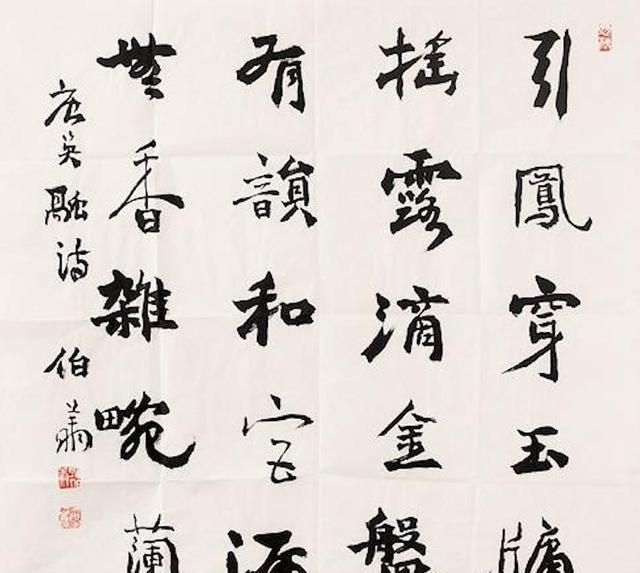 引鳳穿玉牖
搖露滴金盤
有韻和宮漏
無香雜畹蘭
唐吳融詩 伯